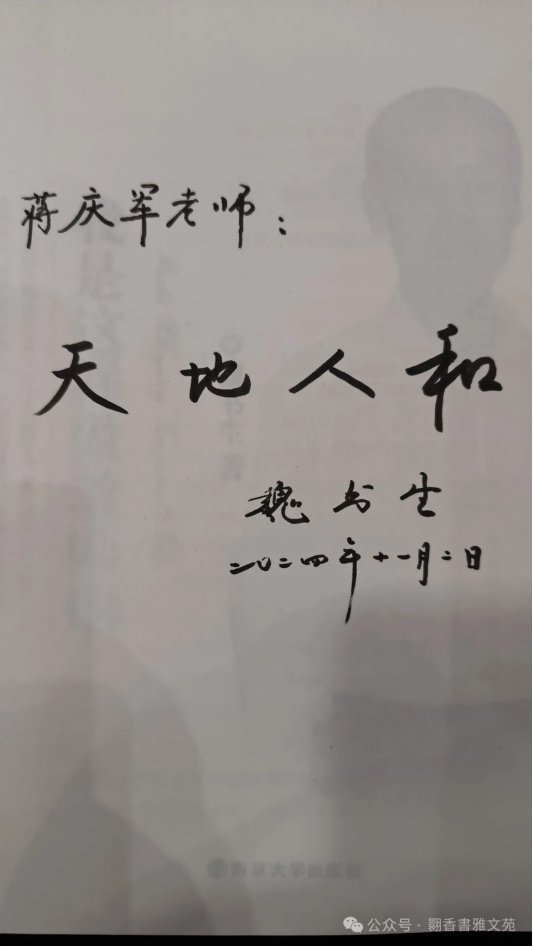 蒋庆军老师：
天地人和
魏书生
二〇二四年十一月二日
公众号·翾香書雅文苑